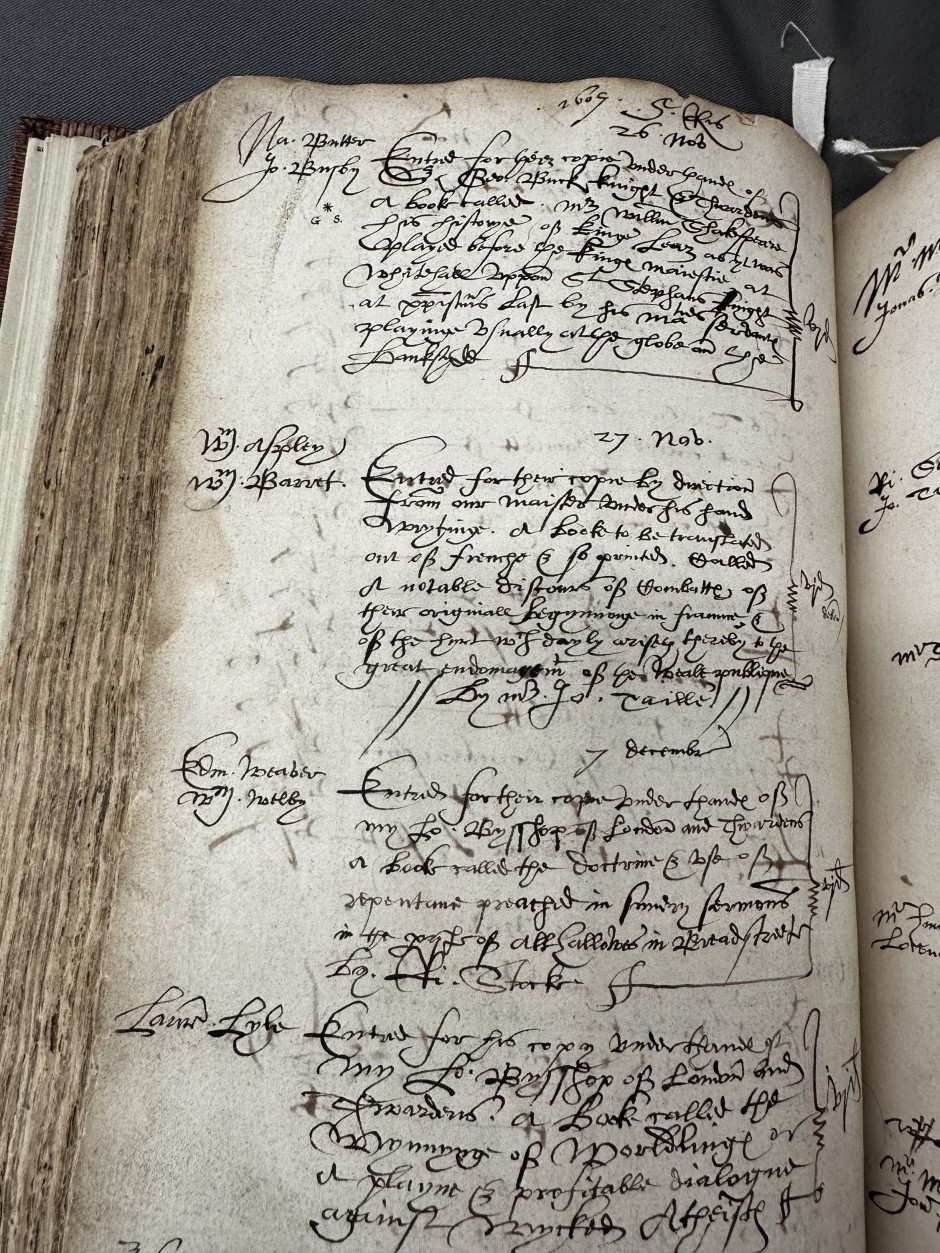 1607. 5. Re.Ris
26. Nov
Na. Butter
Jo. Busby
Entred for their copie vnder handes of
Sr. Geo. Buck knight & Thwardens
A booke called. Mr William Shakespeare
his historye of Kinge Lear as yt was
played before the kinges maiestie at
Whitehall vppon St Stephans night
at xpistmas Last by his maties servantes
playinge vsually at the globe on the
Banksyde
vjd
* G S.
27. Nov.
Wm. Aspley
Wm. Barret.
Entred for their copie by direction
from our maister vnder his hand
wrytinge. A booke to be translated
out of frenche & so printed. Called
A notable discours of Combattes of
their originall begynnynge in fraunce &
of the hurt wch dayly ariseth thereby to the
great endomagemt of the Weale publique
By mr. Jo. Taille
vjd
7 decembr
Edm. Weaver
Wm. Welby
Entred for their copie vnder thandes of
my Lo. Bysshop of London and Thwardens
a book called the doctrine & vse of
repentance preached in sundry sermons
in the parish of Allhallowes in Breadstreete
by. Ri. Stocke
vjd
Laurē. Lyle
Entred for his copy vnder thandes of
my Lo. Bysshop of London and
Thwardens. A Booke called the
Wynnynge of Worldlinges or
A playne & profitable dialogue
against Wycked Atheists
vjd